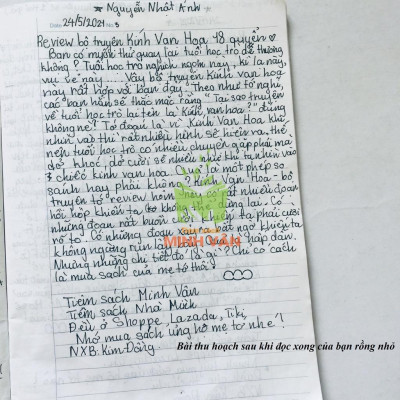 Nguyễn Nhật Ánh
24/5/2021
Review bộ truyện Kính Vạn Hoa 48 quyển
Bạn có muốn thử quay lại tuổi học trò dễ thương
không? Tuổi học trò nghịch ngợm này, kì lạ này,
vui vẻ này..... Vậy bộ truyện Kính vạn hoa
này rất hợp với bạn đấy! Theo như tớ nghĩ,
các bạn hẳn sẽ thắc mắc rằng "Tại sao truyện
về tuổi học trò lại tên là Kính vạn hoa?" đúng
không nè! Tớ đoán là vì Kính Vạn Hoa khi
nhìn vào thì rất nhiều hình sẽ hiện ra, thế
nên tuổi học trò có nhiều chuyện gặp phải mà
bật khóc, dở cười sẽ nhiều như khi ta nhìn vào
chiếc kính vạn hoa. là một phép so
sánh hay phải không? Kính Vạn Hoa - bộ
truyện tớ review hôm có rất nhiều đoạn
hồi hộp khiến ta không thể dừng lại. Có
những đoạn rất buồn cười khiến ta phải cười
rõ to. Có những đoạn xảy ra bất ngờ khiến ta
không ngừng run lẩy hấp dẫn.
Nhưng những chi tiết đó là gì? Chỉ có cách
là mua sách của mẹ tớ thôi!
MINH VÂN
Tiệm sách Minh Vân
Tiệm sách Nhà Muck
Đều ở Shoppe, Lazada, Tiki,
Nhớ mua sách ủng hộ mẹ tớ nhé!
NXB: Kim Đồng
Bài thu hoạch sau khi đọc xong của bạn rồng nhỏ